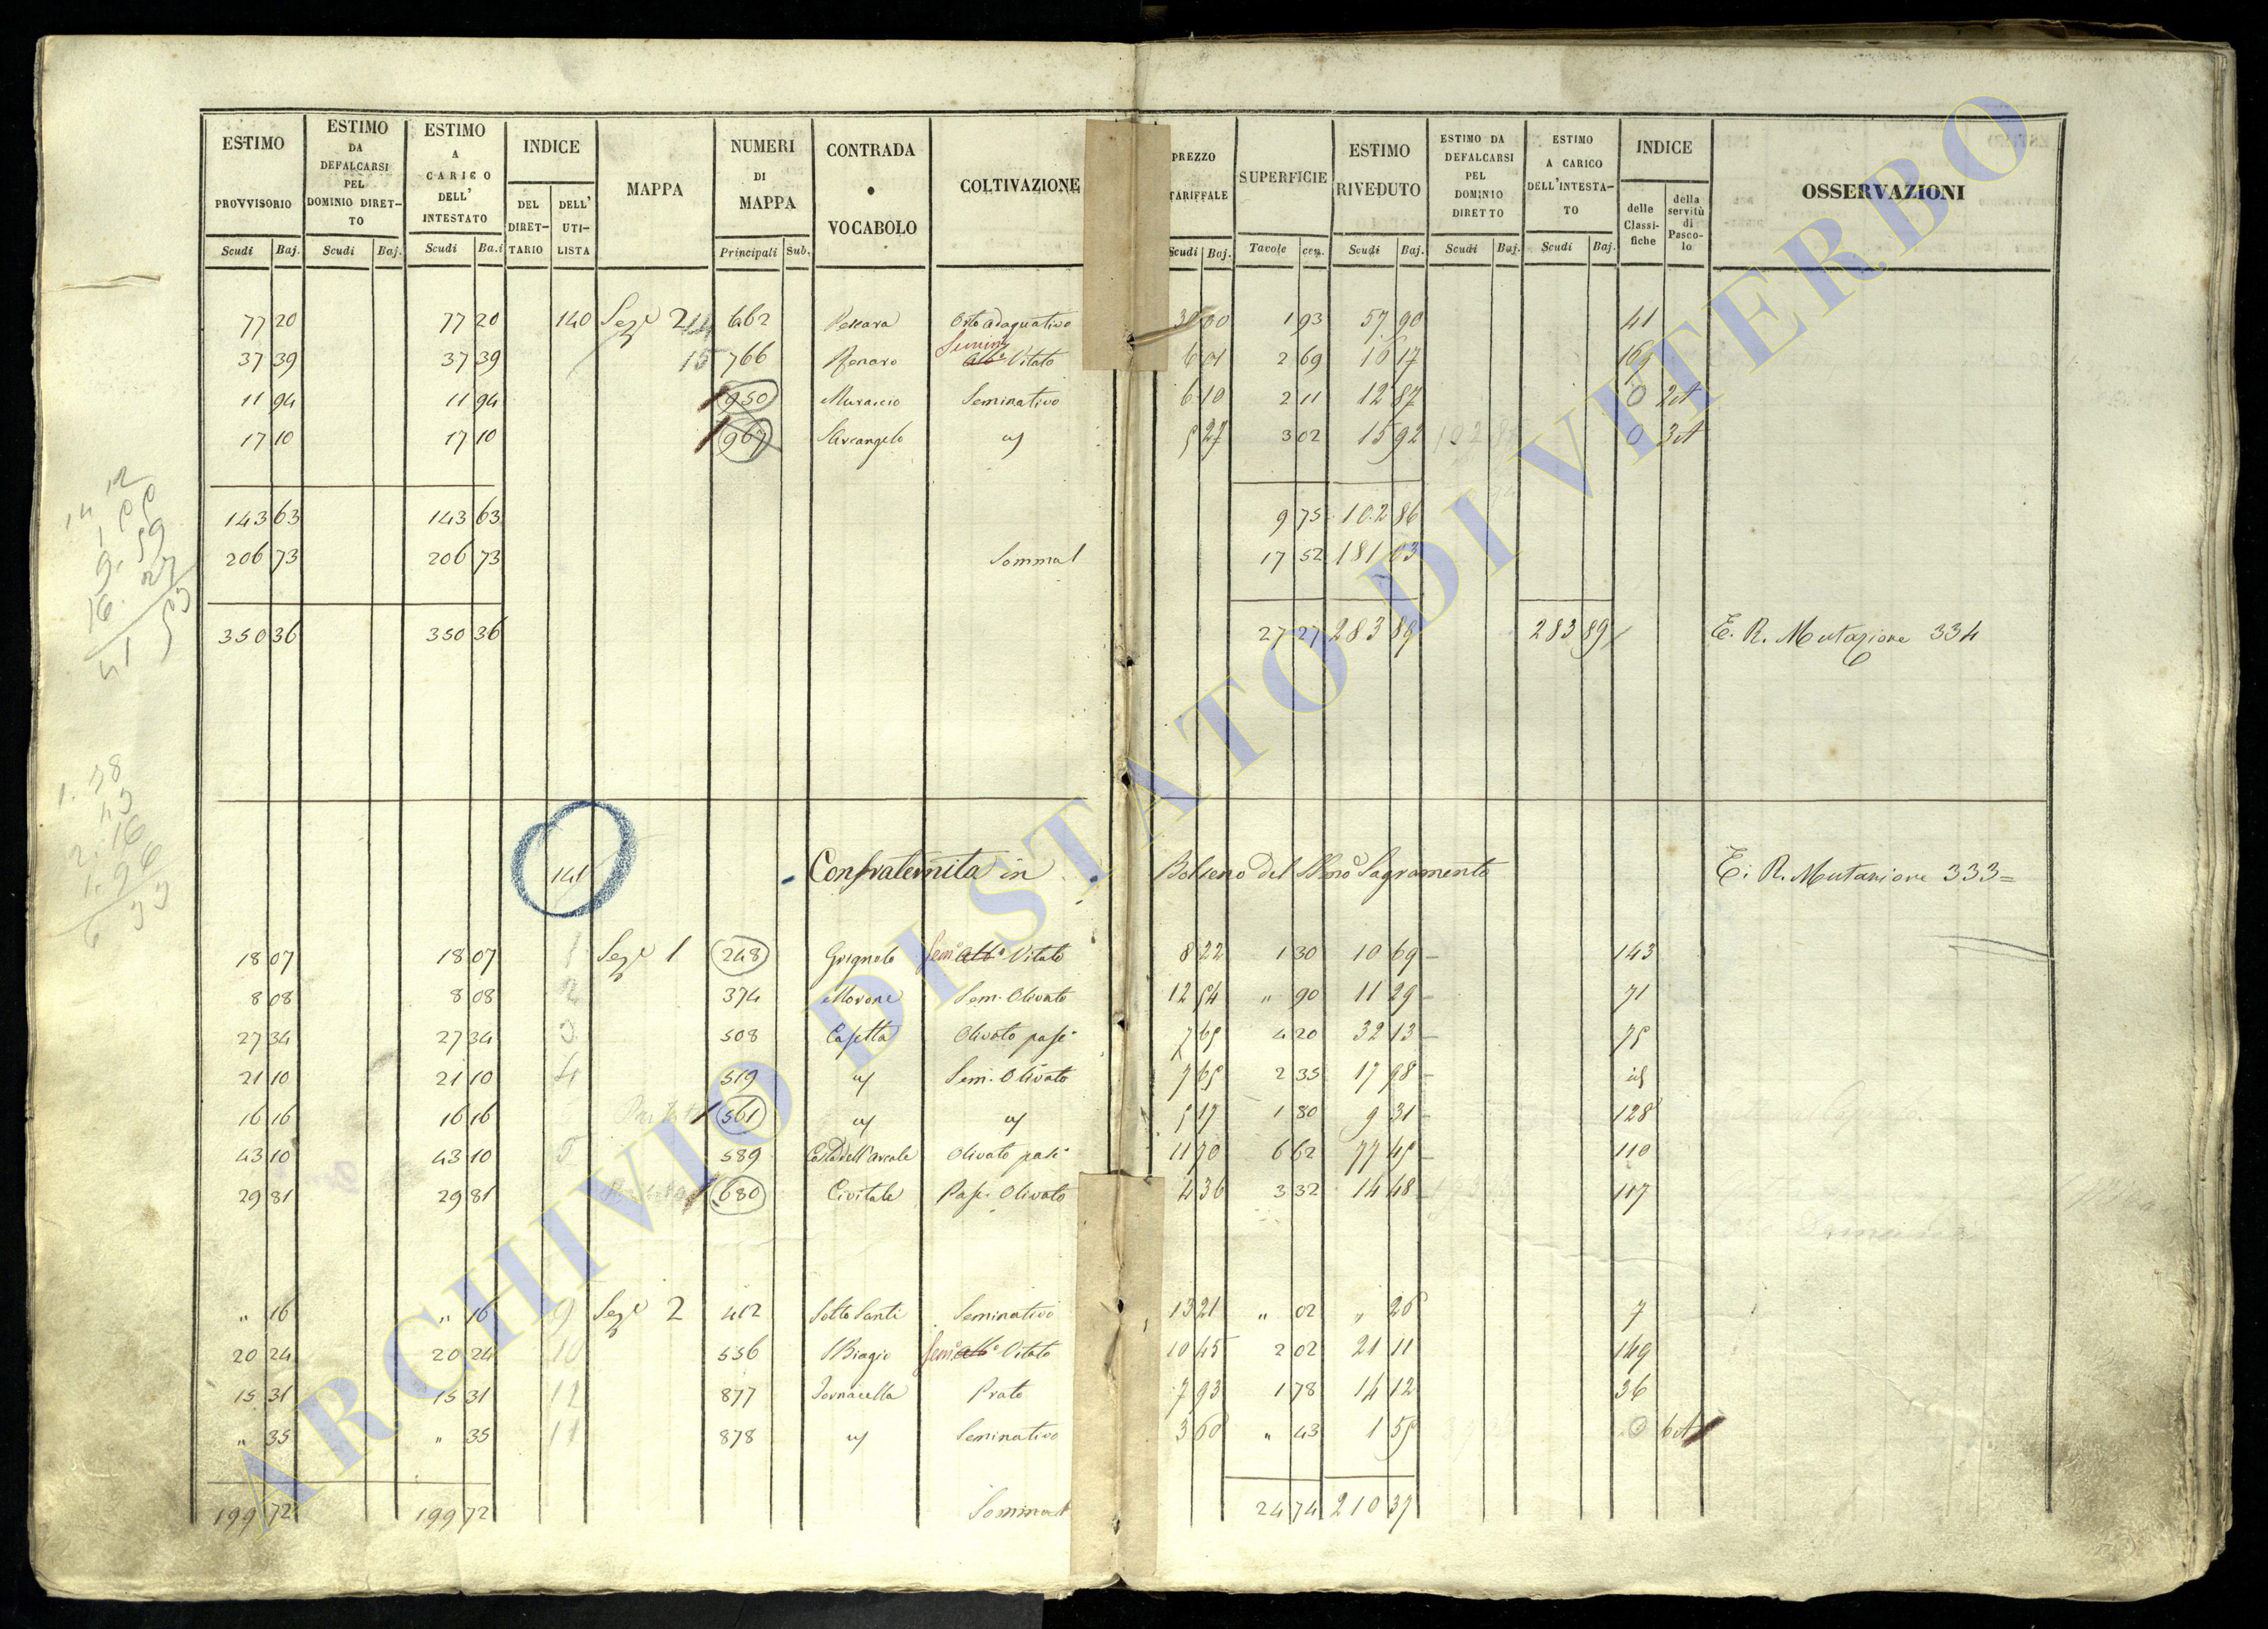 ESTIMO PROVVISORIO
ESTIMO DA DEFALCARSI PEL DOMINIO DIRETTO
ESTIMO A CARICO DELL' INTESTATO
INDICE
DEL DIRETTARIO
DELL' UTILISTA
MAPPA
NUMERI DI MAPPA
CONTRADA o VOCABOLO
COLTIVAZIONE
PREZZO TARIFFALE
SUPERFICIE
ESTIMO RIVEDUTO
ESTIMO DA DEFALCARSI PEL DOMINIO DIRETTO
ESTIMO A CARICO DELL'INTESTATO
INDICE
delle Classifiche
della servitù di Pascolo
OSSERVAZIONI
Scudi Baj. Scudi Baj. Scudi Ba.i Principali Sub. Scudi Baj. Tavole cen. Scudi Baj. Scudi Baj. Scudi Baj.
77 20 77 20 140 Sezе 2 14 662 Pescara Orto adaquativo 30 00 1 93 57 90 41
37 39 37 39 15 766 Semin Vitato 6 01 2 69 16 17 169
11 94 11 94 950 Muraccio Seminativo 6 10 2 11 12 87 0 2 A
17 10 17 10 967 S Arcangelo 5 27 3 02 15 92 0 3 A
143 63 143 63 9 75 102 86
206 73 206 73 Somma 17 52 181 03
350 36 350 36 27 27 283 89 283 89 E. R. Mutazione 334
141 Confraternita in Bolseno del SSmo Sagramento E. R. Mutazione 333=
18 07 18 07 1 Seze 1 248 Grignolo Semo Albo Vitato 8 22 1 30 10 69 143
8 08 8 08 2 374 Morone Sem. Olivato 12 54 " 90 11 29 71
27 34 27 34 3 508 Casetta Olivato 7 65 4 20 32 13 75
21 10 21 10 4 519 Sem. Olivato 7 65 2 35 17 98 id
16 16 16 16 561 5 17 1 80 9 31 128
43 10 43 10 5 589 Olivato 11 70 6 62 77 45 110
29 81 29 81 680 Civitale Pas. Olivato 4 36 3 32 14 48 117
" 16 " 16 9 Seze 2 412 Sotto Santi Seminativo 13 21 " 02 " 26 7
20 24 20 24 10 556 S Biagio Semo Albo Vitato 10 45 2 02 21 11 149
15 31 15 31 12 877 Fornacella Prato 7 93 1 78 14 12 36
" 35 " 35 11 878 Seminativo 3 60 " 43 1 55 0 6 A
199 72 199 72 Somma 24 74 210 37
ARCHIVIO DI STATO DI VITERBO